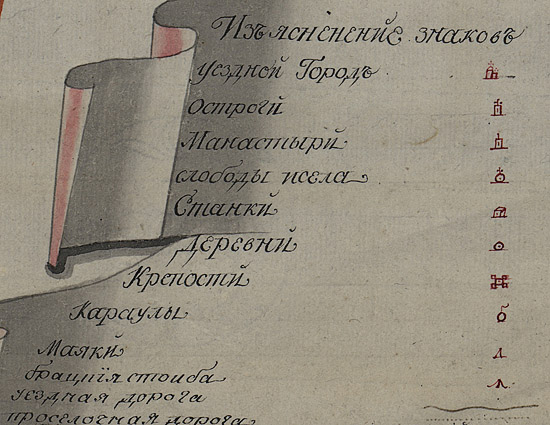 Изъясненение знаковъ
уездной Городъ
Остроги
Манастыри
слободы исела
Станки
Деревни
Крепости
Караулы
Маяки
брацкія стоиба
уездная дорога
проселочная дорога